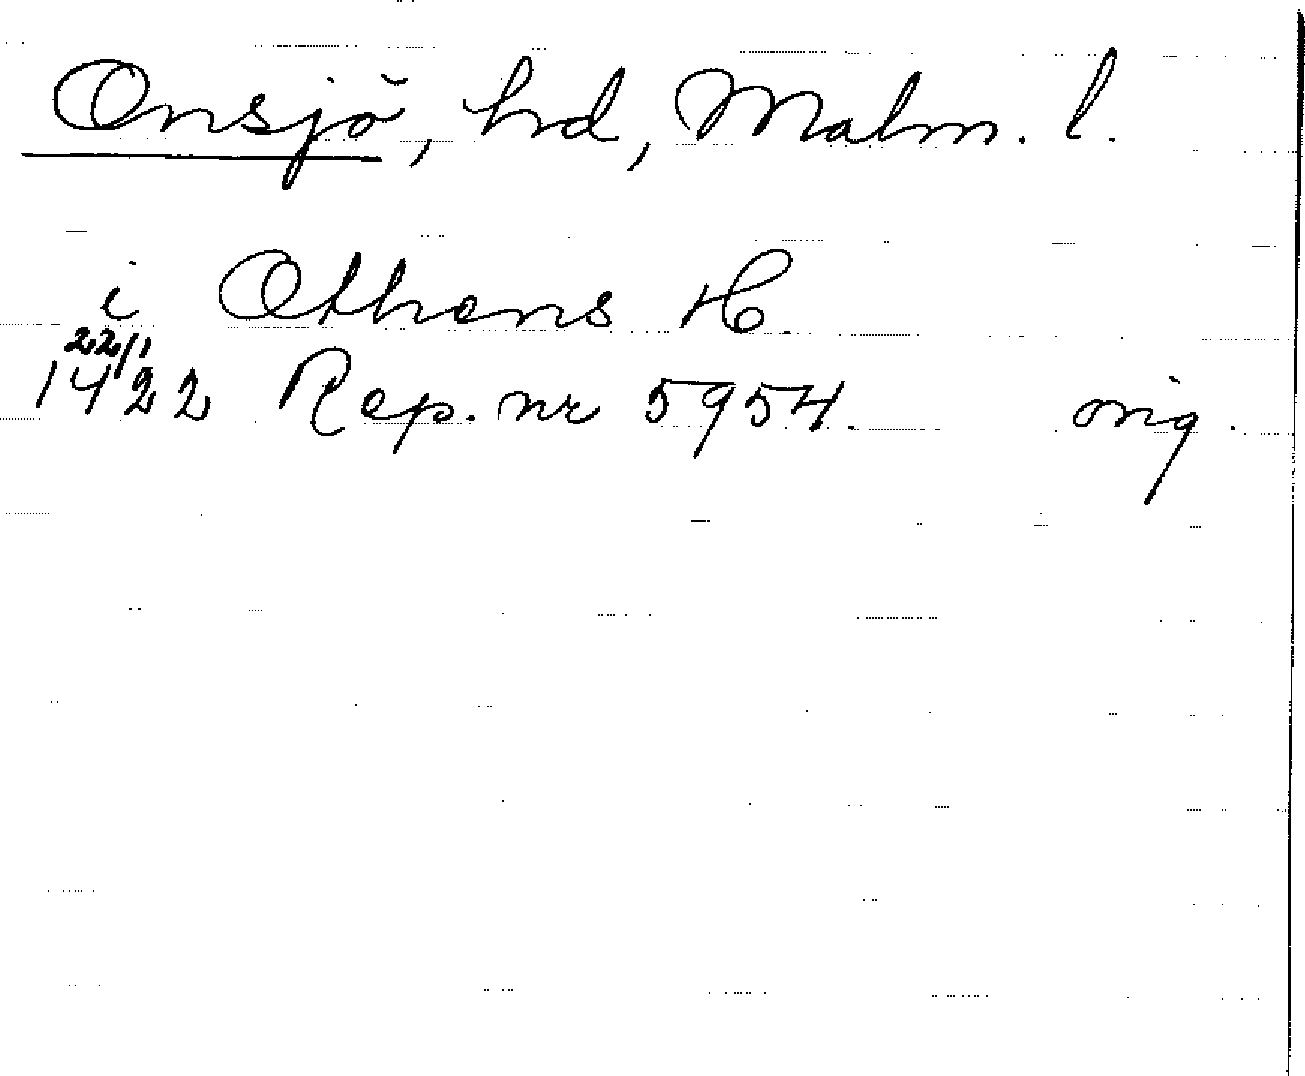 Onsjö, hd, Malm. l.
i Othens H.
22/1
1422 Rep. nr 5954. orig.